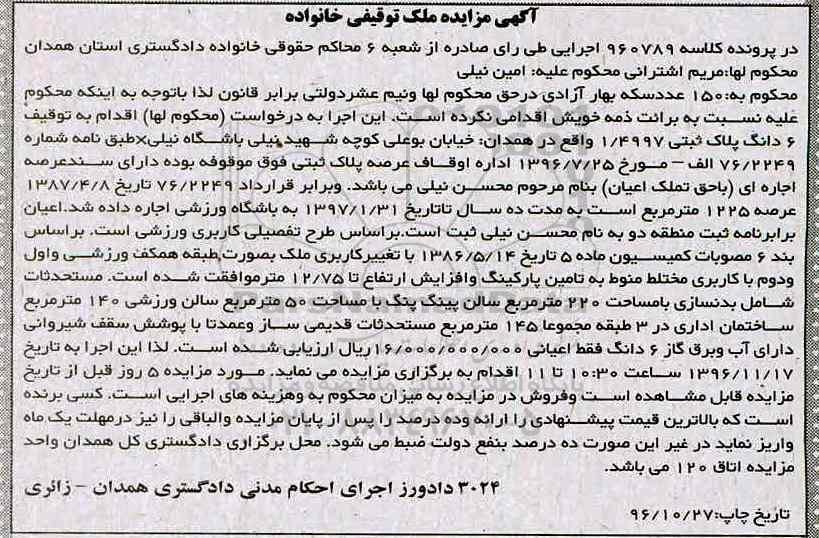 آگهی مزایده ملک توقیفی خانواده
در پرونده کلاسه ۹۶۰۷۸۹ اجرایی طی رای صادره از شعبه ۶ محاکم حقوقی خانواده دادگستری استان همدان
محکوم لها:مریم اشترانی محکوم علیه: امین نیلی
محکوم به:۱۵۰ عددسکه بهار آزادی درحق محکوم لها ونیم عشردولتی برابر قانون لذا باتوجه به اینکه محکوم
علیه نسبت به برائت ذمه خویش اقدامی نکرده است. این اجرا به درخواست (محکوم لها) اقدام به توقیف
۶ دانگ پلاک ثبتی ۱/۴۹۹۷ واقع در همدان: خیابان بوعلی کوچه شهید نیلی باشگاه نیلی×طبق نامه شماره
۷۶/۲۲۴۹ الف – مورخ ۱۳۹۶/۷/۲۵ اداره اوقاف عرصه پلاک ثبتی فوق موقوفه بوده دارای سندعرصه
اجاره ای (باحق تملک اعیان) بنام مرحوم محسن نیلی می باشد. وبرابر قرارداد ۷۶/۲۲۴۹ تاریخ ۱۳۸۷/۴/۸
عرصه ۱۲۲۵ مترمربع است به مدت ده سال تاتاریخ ۱۳۹۷/۱/۳۱ به باشگاه ورزشی اجاره داده شد.اعیان
برابرنامه ثبت منطقه دو به نام محسن نیلی ثبت است.براساس طرح تفصیلی کاربری ورزشی است. براساس
بند ۶ مصوبات کمیسیون ماده ۵ تاریخ ۱۳۸۶/۵/۱۴ با تغییرکاربری ملک بصورت طبقه همکف ورزشی واول
ودوم با کاربری مختلط منوط به تامین پارکینگ وافزایش ارتفاع تا ۱۲/۷۵ مترموافقت شده است. مستحدثات
شامل بدنسازی بامساحت ۲۲۰ مترمربع سالن پینگ پنگ با مساحت ۵۰ مترمربع سالن ورزشی ۱۴۰ مترمربع
ساختمان اداری در ۳ طبقه مجموعا ۱۴۵ مترمربع مستحدثات قدیمی ساز وعمدتا با پوشش سقف شیروانی
دارای آب وبرق گاز ۶ دانگ فقط اعیانی ۱۶/۰۰۰/۰۰۰/۰۰۰ریال ارزیابی شده است. لذا این اجرا به تاریخ
۱۳۹۶/۱۱/۱۷ ساعت ۱۰:۳۰ تا ۱۱ اقدام به برگزاری مزایده می نماید. مورد مزایده ۵ روز قبل از تاریخ
مزایده قابل مشاهده است وفروش در مزایده به میزان محکوم به وهزینه های اجرایی است. کسی برنده
است که بالاترین قیمت پیشنهادی را ارائه وده درصد را پس از پایان مزایده والباقی را نیز درمهلت یک ماه
واریز نماید در غیر این صورت ده درصد بنفع دولت ضبط می شود. محل برگزاری دادگستری کل همدان واحد
مزایده اتاق ۱۲۰ می باشد.
۳۰۲۴ دادورز اجرای احکام مدنی دادگستری همدان – زائری
تاریخ چاپ:۹۶/۱۰/۲۷